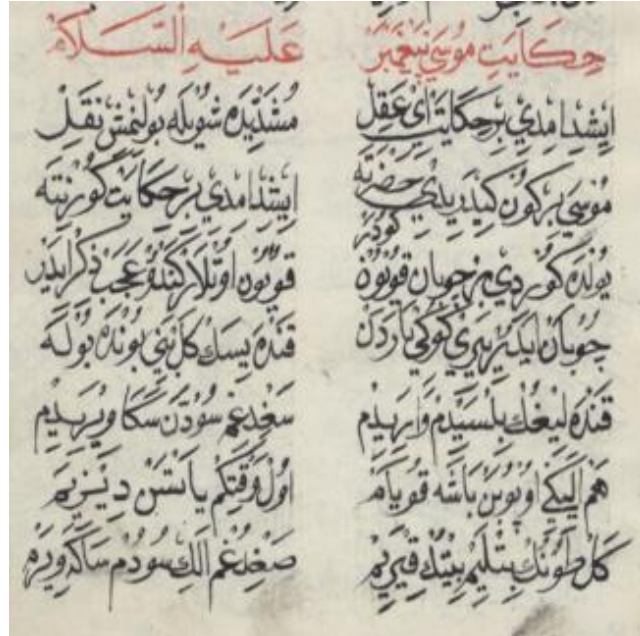 حِكَايَتِ مُوسَي پَيْغَمْبَرْ عَلَيْهِ السَّلَامْ
اِيشِدْ اِمْدِي بِرْ حِكَايَتْ اَيْ عَقِلْ مُشَدِّيدَه شُويْلَه بُولِنْمِشْ نَقِلْ
مُوسَي بِرْ كُونْ كِيدَرِيدِي حَضْرَتَه اِيشِدْ اِمْدِي بِرْ حِكَايَتْ كُورْ نِيتَه
يُولْدَه كُورْدِي بِرْ چُوبَانْ قُويُونْ كُودَرْ قُويُونْ اُوتْلَارْ كَنْدُو عَجَبْ ذِكْرْ اِيدَرْ
چُوبَانْ اَيْدَرْ يِيرِي كُوكِي يَارَدَنْ قَنْدَه يِسَكْ كَلْ بَنِي بُونْدَه بُولَه
قَنْدَه لِيغُكْ بِلْسَيْدِمْ وَارَيْدِمْ سَغِدِغِمْ سُودْدَنْ سَكَا وِيرَيْدِمْ
هَمْ اَلِيكِي اُوپُوبَنْ بَاشَه قُويَامْ اُولْ وَقْتِكِمْ يَاتْسَنْ دِيزِيمْ
كَلْ طُونُكْ بِتْلِيمْ بِيتِكْ قِيرَيِمْ صَغْدِغِمْ اِلِكْ سُودُمْ سَاكَه وِيرَمْ